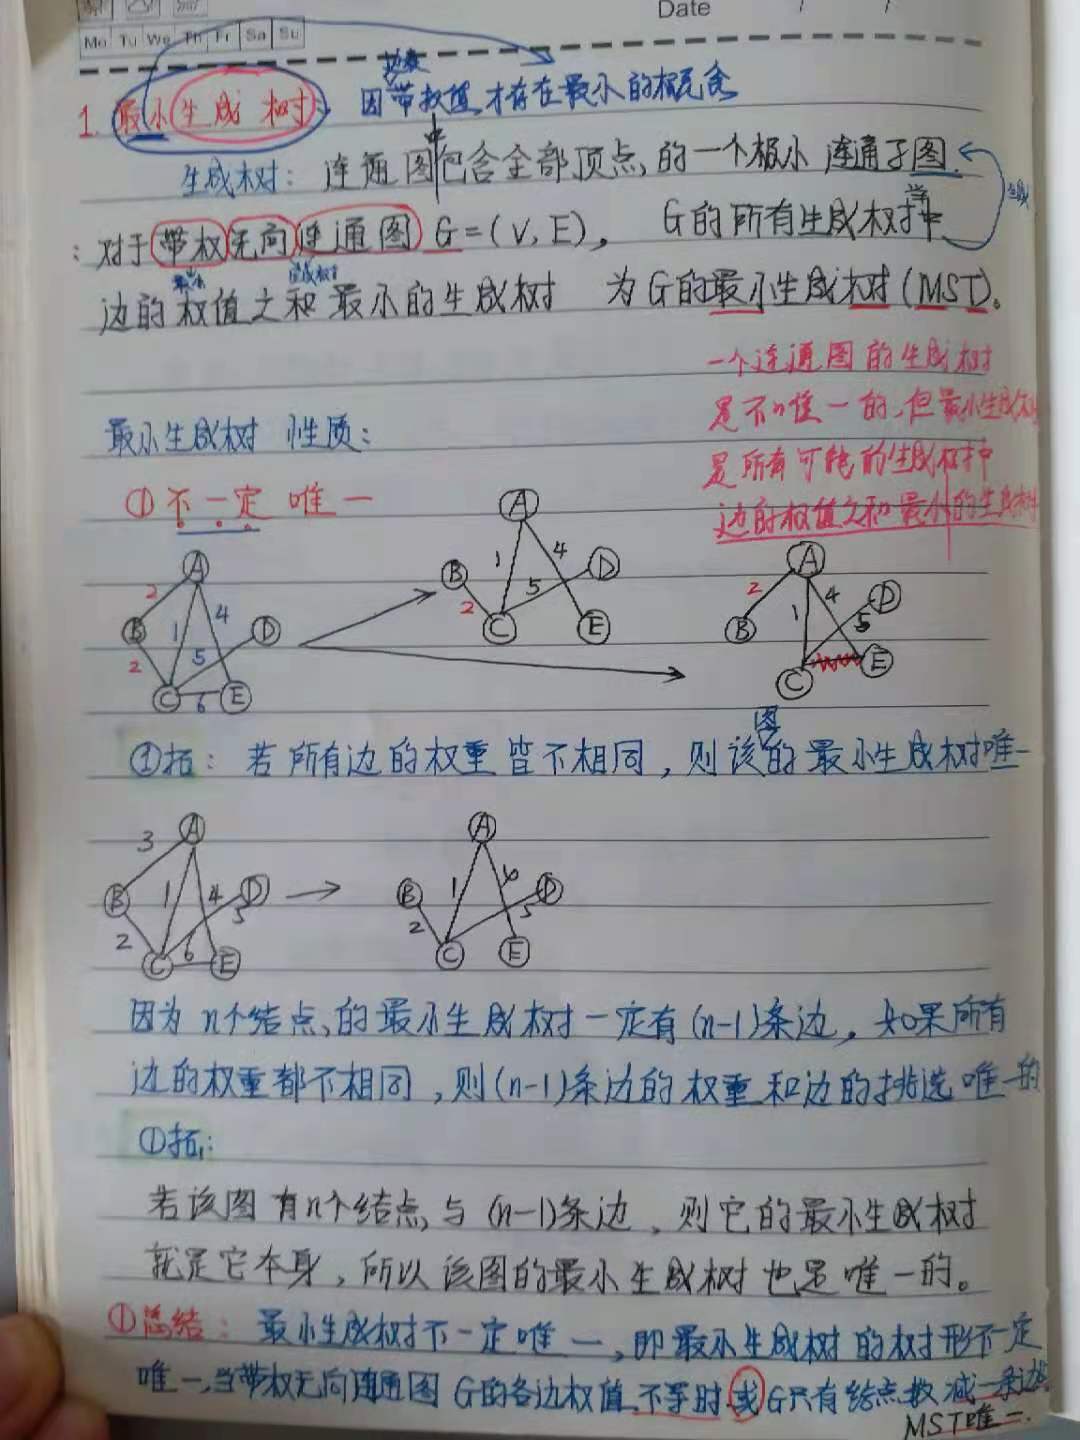 Date / /
Mo Tu We Th Fr Sa Su
1. 最小生成树
因带权值才存在最小的概念
边数
生成树：连通图包含全部顶点的一个极小连通子图
中
生成
：对于带权无向连通图 G=(V,E)，G的所有生成树中
当中
最小
生成树
边的权值之和最小的生成树 为G的最小生成树(MST)。
一个连通图的生成树
是不唯一的，但最小生成树
是所有可能的生成树中
边的权值之和最小的生成树
最小生成树 性质：
①不一定唯一
A
B
C
D
E
2
2
1
4
5
6
A
B
C
D
E
1
4
5
2
A
B
C
D
E
2
1
4
5
①拓：若所有边的权重皆不相同，则该图的最小生成树唯一
A
B
C
D
E
3
1
4
5
2
6
A
B
C
D
E
1
5
2
因为n个结点的最小生成树一定有(n-1)条边，如果所有
边的权重都不相同，则(n-1)条边的权重和边的挑选唯一的
①拓：
若该图有n个结点与(n-1)条边，则它的最小生成树
就是它本身，所以该图的最小生成树也是唯一的。
①总结：最小生成树不一定唯一，即最小生成树的树形不一定
唯一，当带权无向连通图G的各边权值不等时或G只有结点数减一条边时
MST唯一